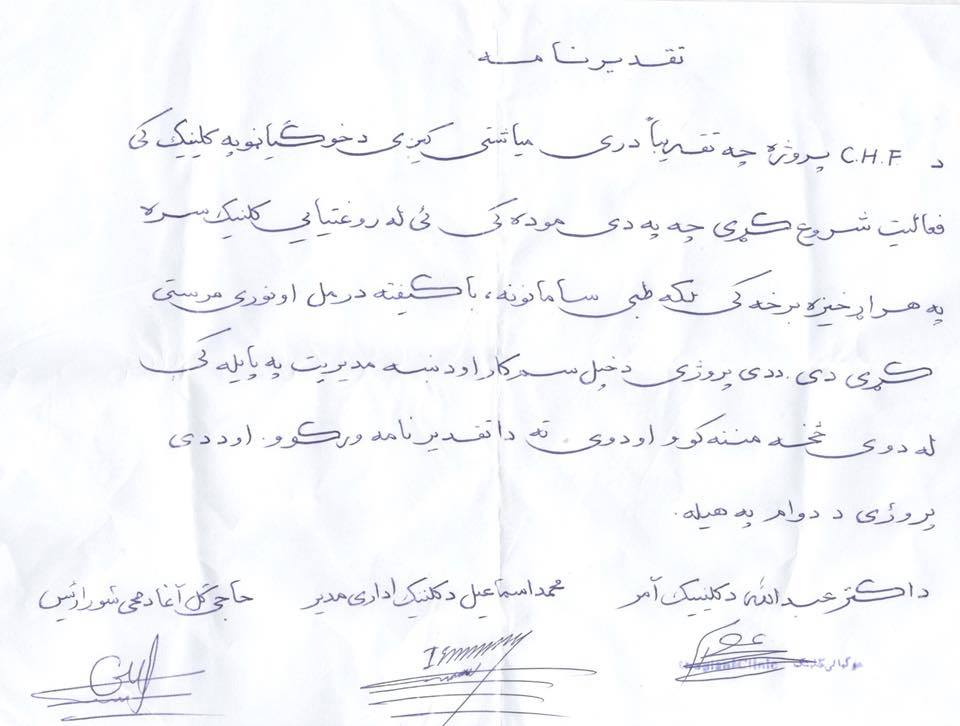 تقدیرنامه
د C.H.F پروژه چه تقریباً دری میاشتی کیږی د خوګیانو په کلینیک کی
فعالیت شروع کړی چه په دی موده کی ئی له روغتیایي کلنیک سره
په هر اړخیزه برخه کی لکه طبی سامانونه، باکیفته درمل او نوری مرستی
کړی دی. ددی پروژی د خپل سم کار او د ښه مدیریت په پایله کی
له دوی څخه مننه کوو او دوی ته دا تقدیرنامه ورکوو. او ددی
پروژی د دوام په هیله.
داکتر عبدالله د کلنیک آمر
محمد اسماعیل د کلنیک اداری مدیر
حاجی ګل آغا د محی شورا رئیس
Clinic